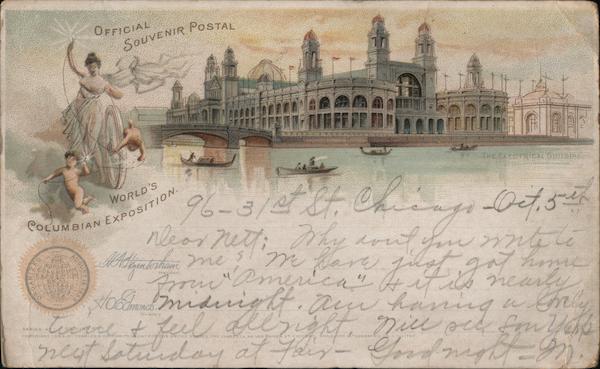 OFFICIAL
SOUVENIR POSTAL
THE ELECTRICAL BUILDING
WORLD'S
COLUMBIAN EXPOSITION.
96-31st St. Chicago Oct. 5th
Dear Nett; Why dont you write to
me? We have just got home
from "America" & it is nearly
midnight. Am having a lovely
time & feel all right. Will see
next Saturday at Fair - Good night - M.